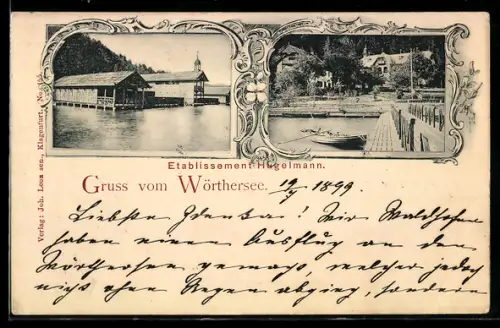 Etablissement Hugelmann.
Gruss vom Wörthersee. 19/7 1899.
Liebste Zdenka! Wir Waldhofer
haben einen Ausflug an den
Wörthersee gemacht, welcher jedoch
nicht ohne Regen abging, sondern
Verlag: Joh. Leon sen., Klagenfurt. No.